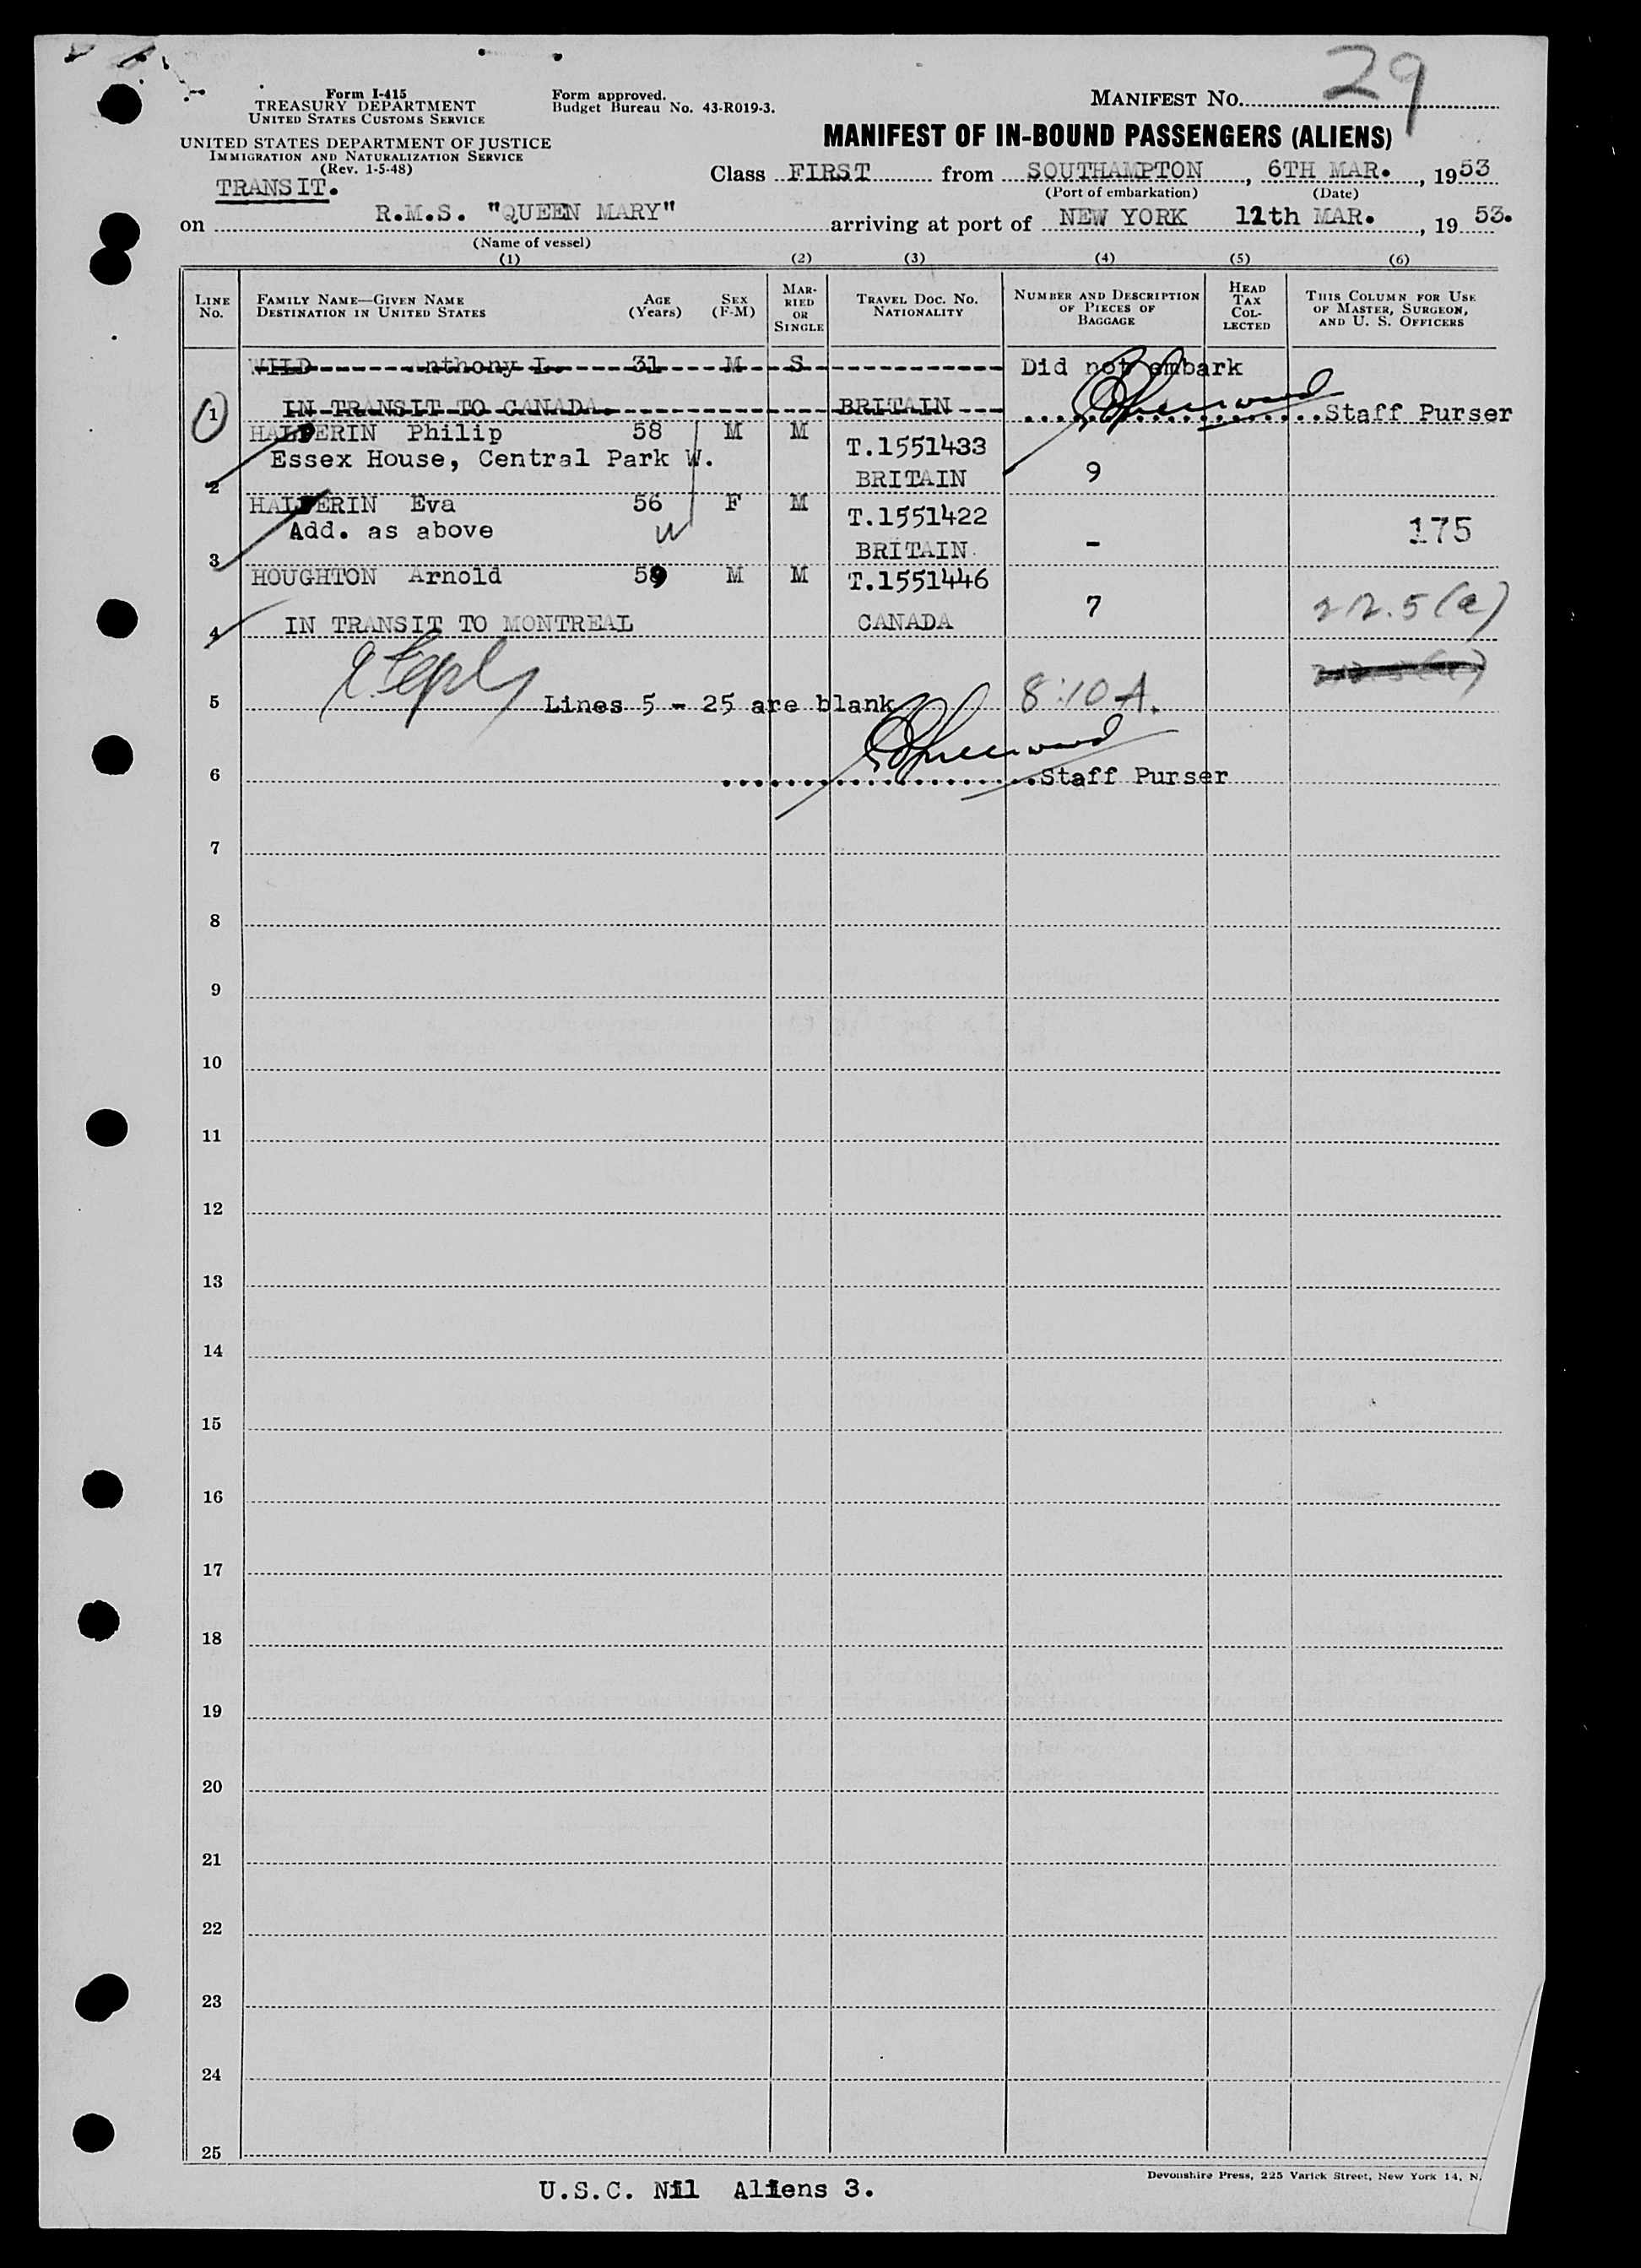 29
Form I-415
TREASURY DEPARTMENT
UNITED STATES CUSTOMS SERVICE
Form approved.
Budget Bureau No. 43-R019-3.
MANIFEST NO.
UNITED STATES DEPARTMENT OF JUSTICE
IMMIGRATION AND NATURALIZATION SERVICE
(Rev. 1-5-48)
MANIFEST OF IN-BOUND PASSENGERS (ALIENS)
TRANSIT.
Class FIRST from SOUTHAMPTON, 6TH MAR., 1953
(Port of embarkation) (Date)
on R.M.S. "QUEEN MARY" arriving at port of NEW YORK 11th MAR., 19 53.
(Name of vessel)
(1) (2) (3) (4) (5) (6)
LINE NO. FAMILY NAME—GIVEN NAME DESTINATION IN UNITED STATES AGE (YEARS) SEX (F-M) MARRIED OR SINGLE TRAVEL DOC. NO. NATIONALITY NUMBER AND DESCRIPTION OF PIECES OF BAGGAGE HEAD TAX COLLECTED THIS COLUMN FOR USE OF MASTER, SURGEON, AND U. S. OFFICERS
WILD Anthony L. 31 M S Did not embark
1 IN TRANSIT TO CANADA. BRITAIN Staff Purser
HALPERIN Philip 58 M M T.1551433
Essex House, Central Park W.
2 BRITAIN 9
HALPERIN Eva 56 F M T.1551422
Add. as above W 175
3 BRITAIN. -
HOUGHTON Arnold 59 M M T.1551446
4 IN TRANSIT TO MONTREAL CANADA 7 212.5(a)
5 Lines 5 - 25 are blank 8:10 A.
6 Staff Purser
7
8
9
10
11
12
13
14
15
16
17
18
19
20
21
22
23
24
25
Devonshire Press, 225 Varick Street, New York 14, N.
U.S.C. Nil Aliens 3.